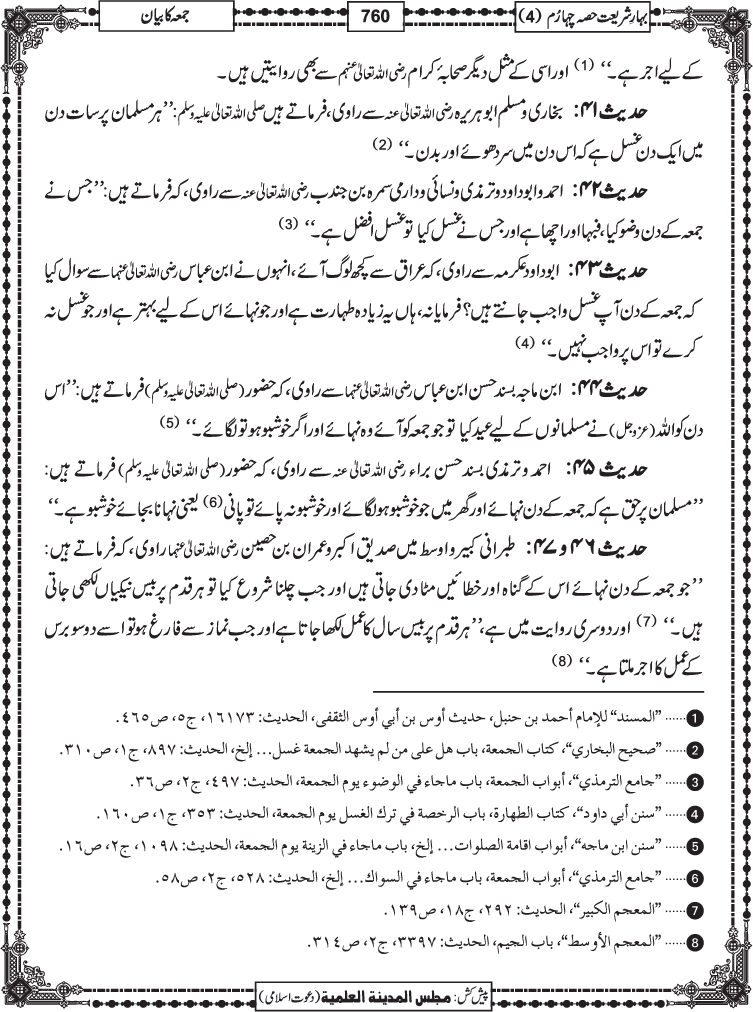 بہارِ شریعت حصہ چہارم (4)
760
جمعہ کا بیان
کے لیے اجر ہے۔‘‘ (1) اور اسی کے مثل دیگر صحابۂ کرام رضی اللہ تعالیٰ عنہم سے بھی روایتیں ہیں۔
حدیث ۴۱: بخاری و مسلم ابوہریرہ رضی اللہ تعالیٰ عنہ سے راوی، فرماتے ہیں صلی اللہ تعالیٰ علیہ وسلم: ’’ہر مسلمان پر سات دن
میں ایک دن غسل ہے کہ اس دن میں سر دھوئے اور بدن۔‘‘ (2)
حدیث ۴۲: احمد و ابوداود و ترمذی و نسائی و دارمی سمرہ بن جندب رضی اللہ تعالیٰ عنہ سے راوی، کہ فرماتے ہیں: ’’جس نے
جمعہ کے دن وضو کیا، فبہا اور اچھا ہے اور جس نے غسل کیا تو غسل افضل ہے۔‘‘ (3)
حدیث ۴۳: ابوداود عکرمہ سے راوی، کہ عراق سے کچھ لوگ آئے، انہوں نے ابن عباس رضی اللہ تعالیٰ عنہما سے سوال کیا
کہ جمعہ کے دن آپ غسل واجب جانتے ہیں؟ فرمایا نہ، ہاں یہ زیادہ طہارت ہے اور جو نہائے اس کے لیے بہتر ہے اور جو غسل نہ
کرے تو اس پر واجب نہیں۔‘‘ (4)
حدیث ۴۴: ابن ماجہ بسند حسن ابن عباس رضی اللہ تعالیٰ عنہما سے راوی، کہ حضور (صلی اللہ تعالیٰ علیہ وسلم) فرماتے ہیں: ’’اس
دن کو اللہ (عزوجل) نے مسلمانوں کے لیے عید کیا تو جو جمعہ کو آئے وہ نہائے اور اگر خوشبو ہو تو لگائے۔‘‘ (5)
حدیث ۴۵: احمد و ترمذی بسند حسن براء رضی اللہ تعالیٰ عنہ سے راوی، کہ حضور (صلی اللہ تعالیٰ علیہ وسلم) فرماتے ہیں:
’’مسلمان پر حق ہے کہ جمعہ کے دن نہائے اور گھر میں جو خوشبو ہو لگائے اور خوشبو نہ پائے تو پانی (6) یعنی نہانا بجائے خوشبو ہے۔‘‘
حدیث ۴۶ و ۴۷: طبرانی کبیر و اوسط میں صدیق اکبر و عمران بن حصین رضی اللہ تعالیٰ عنہما راوی، کہ فرماتے ہیں:
’’جو جمعہ کے دن نہائے اس کے گناہ اور خطائیں مٹا دی جاتی ہیں اور جب چلنا شروع کیا تو ہر قدم پر بیس نیکیاں لکھی جاتی
ہیں۔‘‘ (7) اور دوسری روایت میں ہے، ’’ہر قدم پر بیس سال کا عمل لکھا جاتا ہے اور جب نماز سے فارغ ہو تو اسے دو سو برس
کے عمل کا اجر ملتا ہے۔‘‘ (8)
1 ...... "المسند" للإمام أحمد بن حنبل، حديث أوس بن أبي أوس الثقفى، الحديث: ١٦١٧٣، ج٥، ص٤٦٥.
2 ...... "صحيح البخاري"، كتاب الجمعة، باب هل على من لم يشهد الجمعة غسل... إلخ، الحديث: ٨٩٧، ج١، ص٣١٠.
3 ...... "جامع الترمذي"، أبواب الجمعة، باب ماجاء في الوضوء يوم الجمعة، الحديث: ٤٩٧، ج٢، ص٣٦.
4 ...... "سنن أبي داود"، كتاب الطهارة، باب الرخصة في ترك الغسل يوم الجمعة، الحديث: ٣٥٣، ج١، ص١٦٠.
5 ...... "سنن ابن ماجه"، أبواب اقامة الصلوات... إلخ، باب ماجاء في الزينة يوم الجمعة، الحديث: ١٠٩٨، ج٢، ص١٦.
6 ...... "جامع الترمذي"، أبواب الجمعة، باب ماجاء في السواك... إلخ، الحديث: ٥٢٨، ج٢، ص٥٨.
7 ...... "المعجم الكبير"، الحديث: ٢٩٢، ج١٨، ص١٣٩.
8 ...... "المعجم الأوسط"، باب الجيم، الحديث: ٣٣٩٧، ج٢، ص٣١٤.
پیش کش: مجلس المدينة العلمية (دعوت اسلامی)